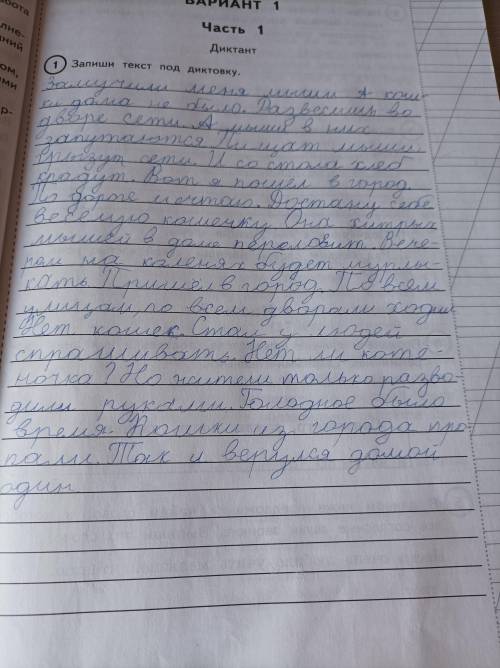 бота
ВАРИАНТ 1
Часть 1
Диктант
1 Запиши текст под диктовку.
Замучили меня мыши А кош-
ки дома не было. Развесишь во
дворе сети. А мыши в них
запутаются. Пищат мыши
Грызут сети. И со стола хлеб
крадут. Вот я пошёл в город.
По дороге мечтаю. Достану себе
весёлую кошечку. Она хитрых
мышей в доме переловит. Вече-
ром на коленях будет мурлы-
кать. Пришёл в город. По всем
улицам, по всем дворам ходил
Нет кошек. Стал у людей
спрашивать. Нет ли коте-
ночка? Но жители только разво-
дили руками. Голодное было
время. Кошки из города про-
пали. Так и вернулся домой
один